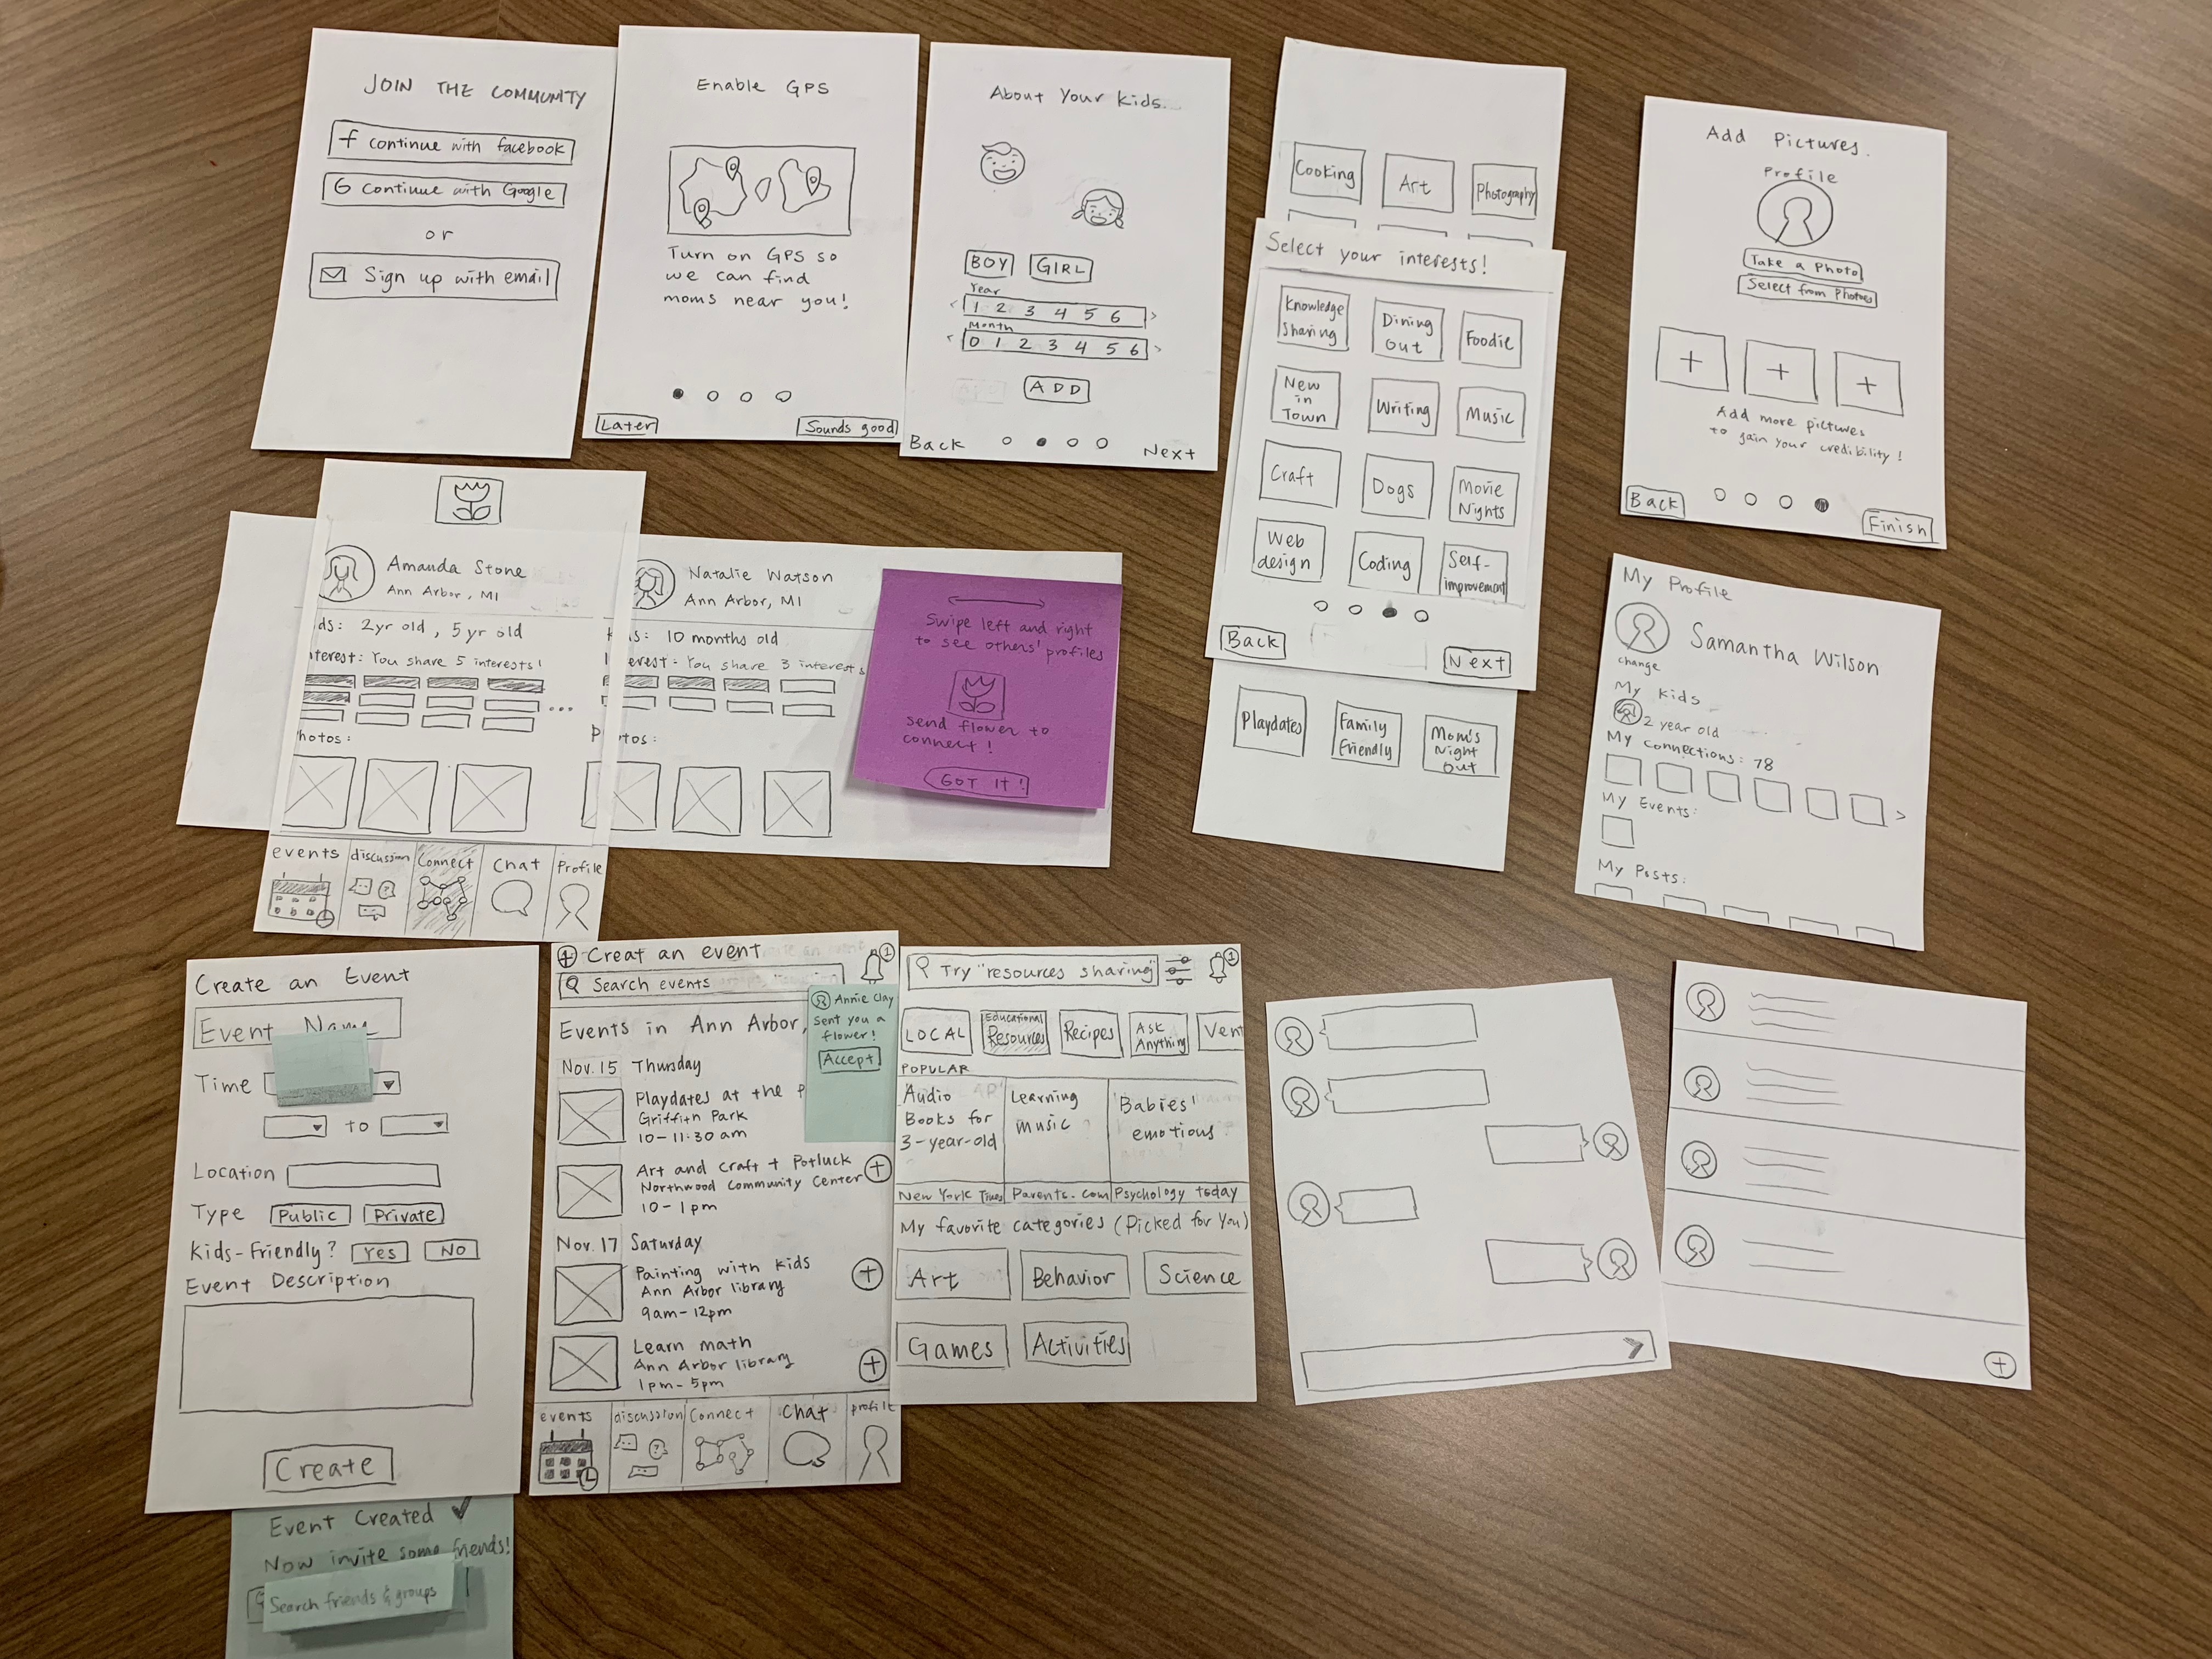 JOIN THE COMMUNITY
f continue with facebook
G continue with Google
or
Sign up with email
Enable GPS
Turn on GPS so
we can find
moms near you!
Later
Sounds good
About Your Kids..
BOY
GIRL
Year
< 1 2 3 4 5 6 >
Month
< 0 1 2 3 4 5 6 >
ADD
Back
Next
Cooking
Art
Photography
Select your interests!
Knowledge
Sharing
Dining
Out
Foodie
New
in
Town
Writing
Music
Craft
Dogs
Movie
Nights
Web
design
Coding
Self-
improvement
Back
Next
Playdates
Family
Friendly
Mom's
Night
Out
Add Pictures.
Profile
Take a Photo
Select from Photos
+
+
+
Add more pictures
to gain your credibility!
Back
Finish
Amanda Stone
Ann Arbor, MI
ds: 2yr old, 5yr old
terest: You share 5 interests!
...
hotos:
events
discussion
Connect
Chat
Profile
Natalie Watson
Ann Arbor, MI
s: 10 months old
erest: You share 3 interests
Photos:
Swipe left and right
to see others' profiles
send flower to
connect!
GOT IT!
My Profile
Samantha Wilson
change
My Kids
2 year old
My Connections: 78
>
My Events:
My Posts:
Create an Event
Event Name
Time
to
Location
Type Public Private
Kids-Friendly? Yes No
Event Description
Create
Event Created ✓
Now invite some friends!
Search friends & groups
+ Creat an event
1
Search events
Events in Ann Arbor,
Annie Clay
sent you a
flower!
Accept
Nov. 15 Thursday
Playdates at the P
Griffith Park
10-11:30 am
Art and Craft + Potluck
Northwood Community Center
10-1pm
+
Nov. 17 Saturday
Painting with Kids
Ann Arbor library
9am-12pm
+
Learn math
Ann Arbor library
1pm-5pm
+
events
discussion
Connect
Chat
profile
Try "resources sharing"
1
LOCAL
Educational
Resources
Recipes
Ask
Anything
Vent
POPULAR
Audio
Books for
3-year-old
Learning
music
Babies'
emotions
New York Times
Parents.com
Psychology today
My favorite categories (Picked for You)
Art
Behavior
Science
Games
Activities
+